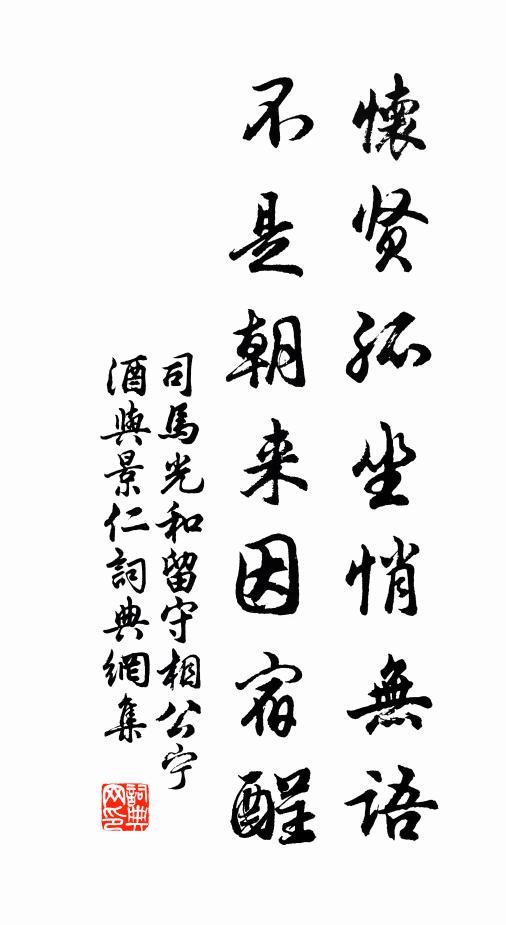 懷贤孤坐悄無語
不是朝来因宿酲
司馬光和留守相公宁
酒與景仁詞典網集
詞典网印